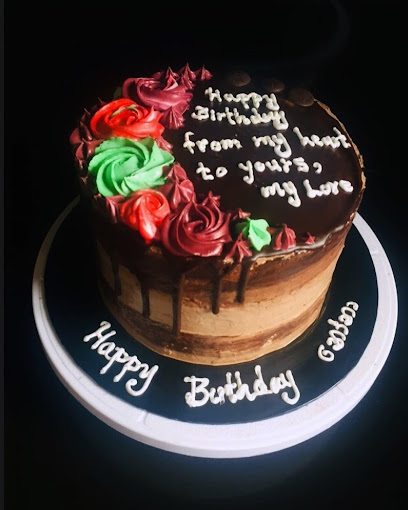 Happy
Birthday
from my heart
to yours,
my Love
Happy Birthday